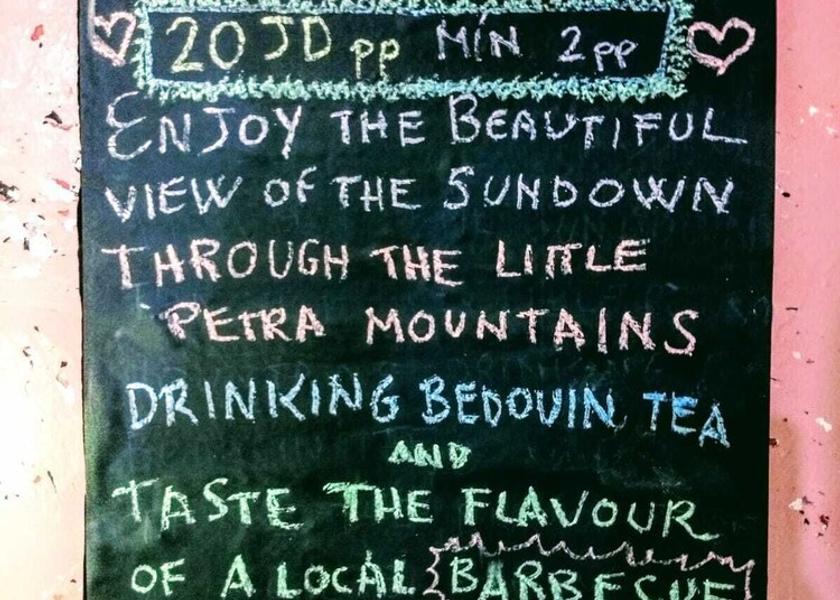 20 JD pp MÍN 2pp
ENJOY THE BEAUTIFUL
VIEW OF THE SUNDOWN
THROUGH THE LITTLE
PETRA MOUNTAINS
DRINKING BEDOUIN TEA
AND
TASTE THE FLAVOUR
OF A LOCAL BARBECUE